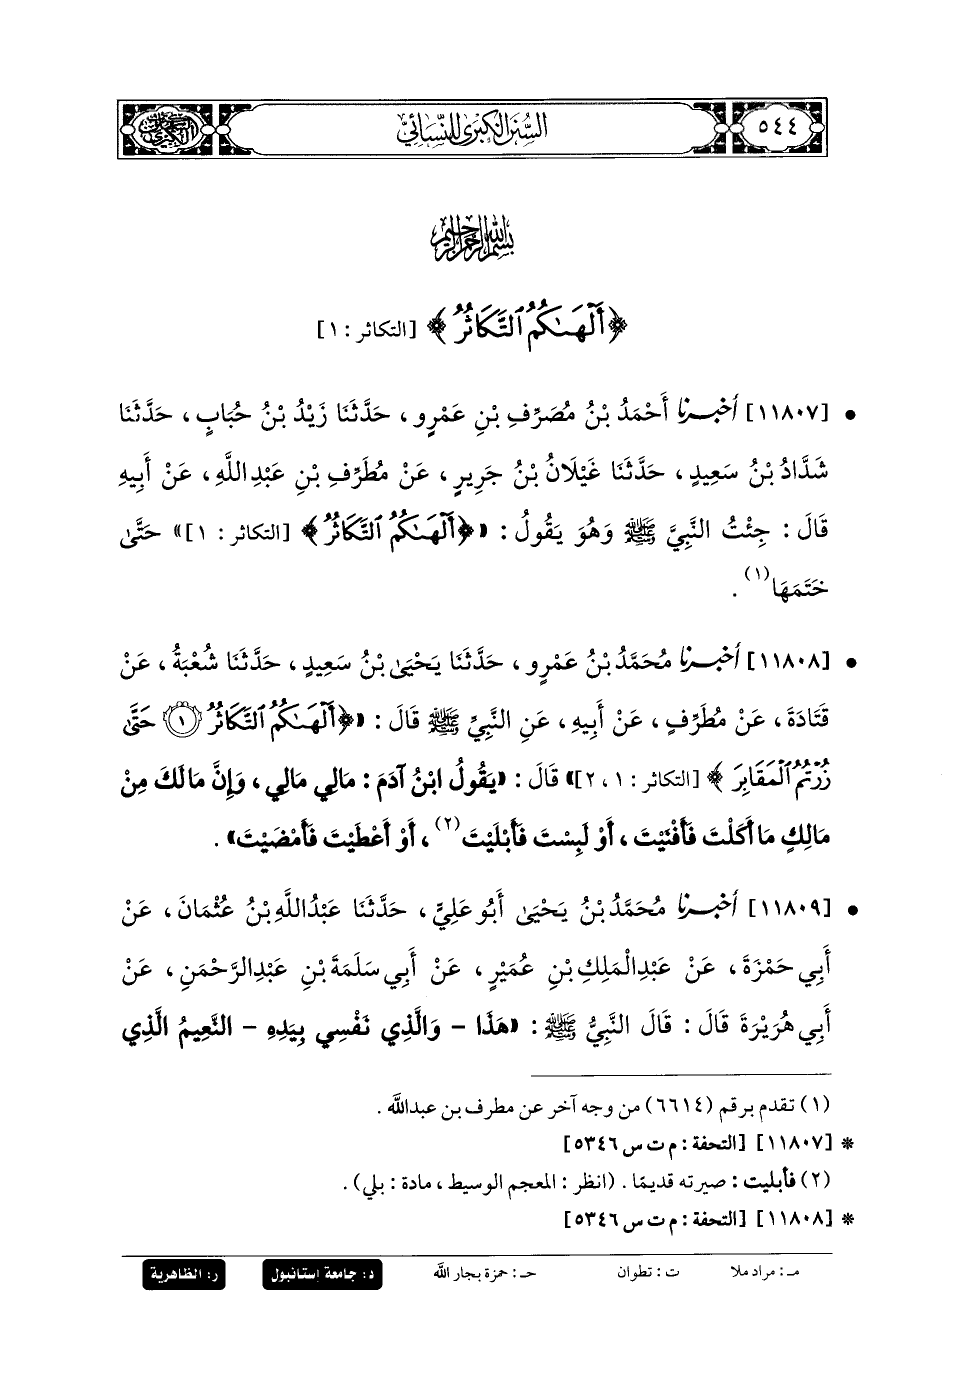 ٥٤٤
السنن الكبرى للنسائي
بسم الله الرحمن الرحيم
﴿أَلْهَىٰكُمُ ٱلتَّكَاثُرُ﴾ [التكاثر : ١]
• [١١٨٠٧] أخبرنا أَحْمَدُ بْنُ مُصَرِّفِ بْنِ عَمْرٍو ، حَدَّثَنَا زَيْدُ بْنُ حُبَابٍ ، حَدَّثَنَا
شَدَّادُ بْنُ سَعِيدٍ ، حَدَّثَنَا غَيْلَانُ بْنُ جَرِيرٍ ، عَنْ مُطَرِّفِ بْنِ عَبْدِ اللَّهِ ، عَنْ أَبِيهِ
قَالَ : جِئْتُ النَّبِيَّ ﷺ وَهُوَ يَقُولُ : «﴿أَلْهَىٰكُمُ ٱلتَّكَاثُرُ﴾ [التكاثر : ١]» حَتَّى
خَتَمَهَا(١) .
• [١١٨٠٨] أخبرنا مُحَمَّدُ بْنُ عَمْرٍو ، حَدَّثَنَا يَحْيَى بْنُ سَعِيدٍ ، حَدَّثَنَا شُعْبَةُ ، عَنْ
قَتَادَةَ ، عَنْ مُطَرِّفٍ ، عَنْ أَبِيهِ ، عَنِ النَّبِيِّ ﷺ قَالَ : «﴿أَلْهَىٰكُمُ ٱلتَّكَاثُرُ ١ حَتَّىٰ
زُرْتُمُ ٱلْمَقَابِرَ﴾ [التكاثر : ١ ، ٢]» قَالَ : «يَقُولُ ابْنُ آدَمَ : مَالِي مَالِي ، وَإِنَّ مَا لَكَ مِنْ
مَالِكِ مَا أَكَلْتَ فَأَفْنَيْتَ ، أَوْ لَبِسْتَ فَأَبْلَيْتَ(٢) ، أَوْ أَعْطَيْتَ فَأَمْضَيْتَ» .
• [١١٨٠٩] أخبرنا مُحَمَّدُ بْنُ يَحْيَى أَبُو عَلِيٍّ ، حَدَّثَنَا عَبْدُ اللَّهِ بْنُ عُثْمَانَ ، عَنْ
أَبِي حَمْزَةَ ، عَنْ عَبْدِ الْمَلِكِ بْنِ عُمَيْرٍ ، عَنْ أَبِي سَلَمَةَ بْنِ عَبْدِ الرَّحْمَنِ ، عَنْ
أَبِي هُرَيْرَةَ قَالَ : قَالَ النَّبِيُّ ﷺ : «هَذَا - وَالَّذِي نَفْسِي بِيَدِهِ - النَّعِيمُ الَّذِي
(١) تقدم برقم (٦٦١٤) من وجه آخر عن مطرف بن عبدالله .
* [١١٨٠٧] [التحفة : م ت س ٥٣٤٦]
(٢) فأبليت : صيرته قديمًا . (انظر : المعجم الوسيط ، مادة : بلي) .
* [١١٨٠٨] [التحفة : م ت س ٥٣٤٦]
مـ : مراد ملا ت : تطوان حـ : حمزة بجار الله د : جامعة إستانبول ر : الظاهرية